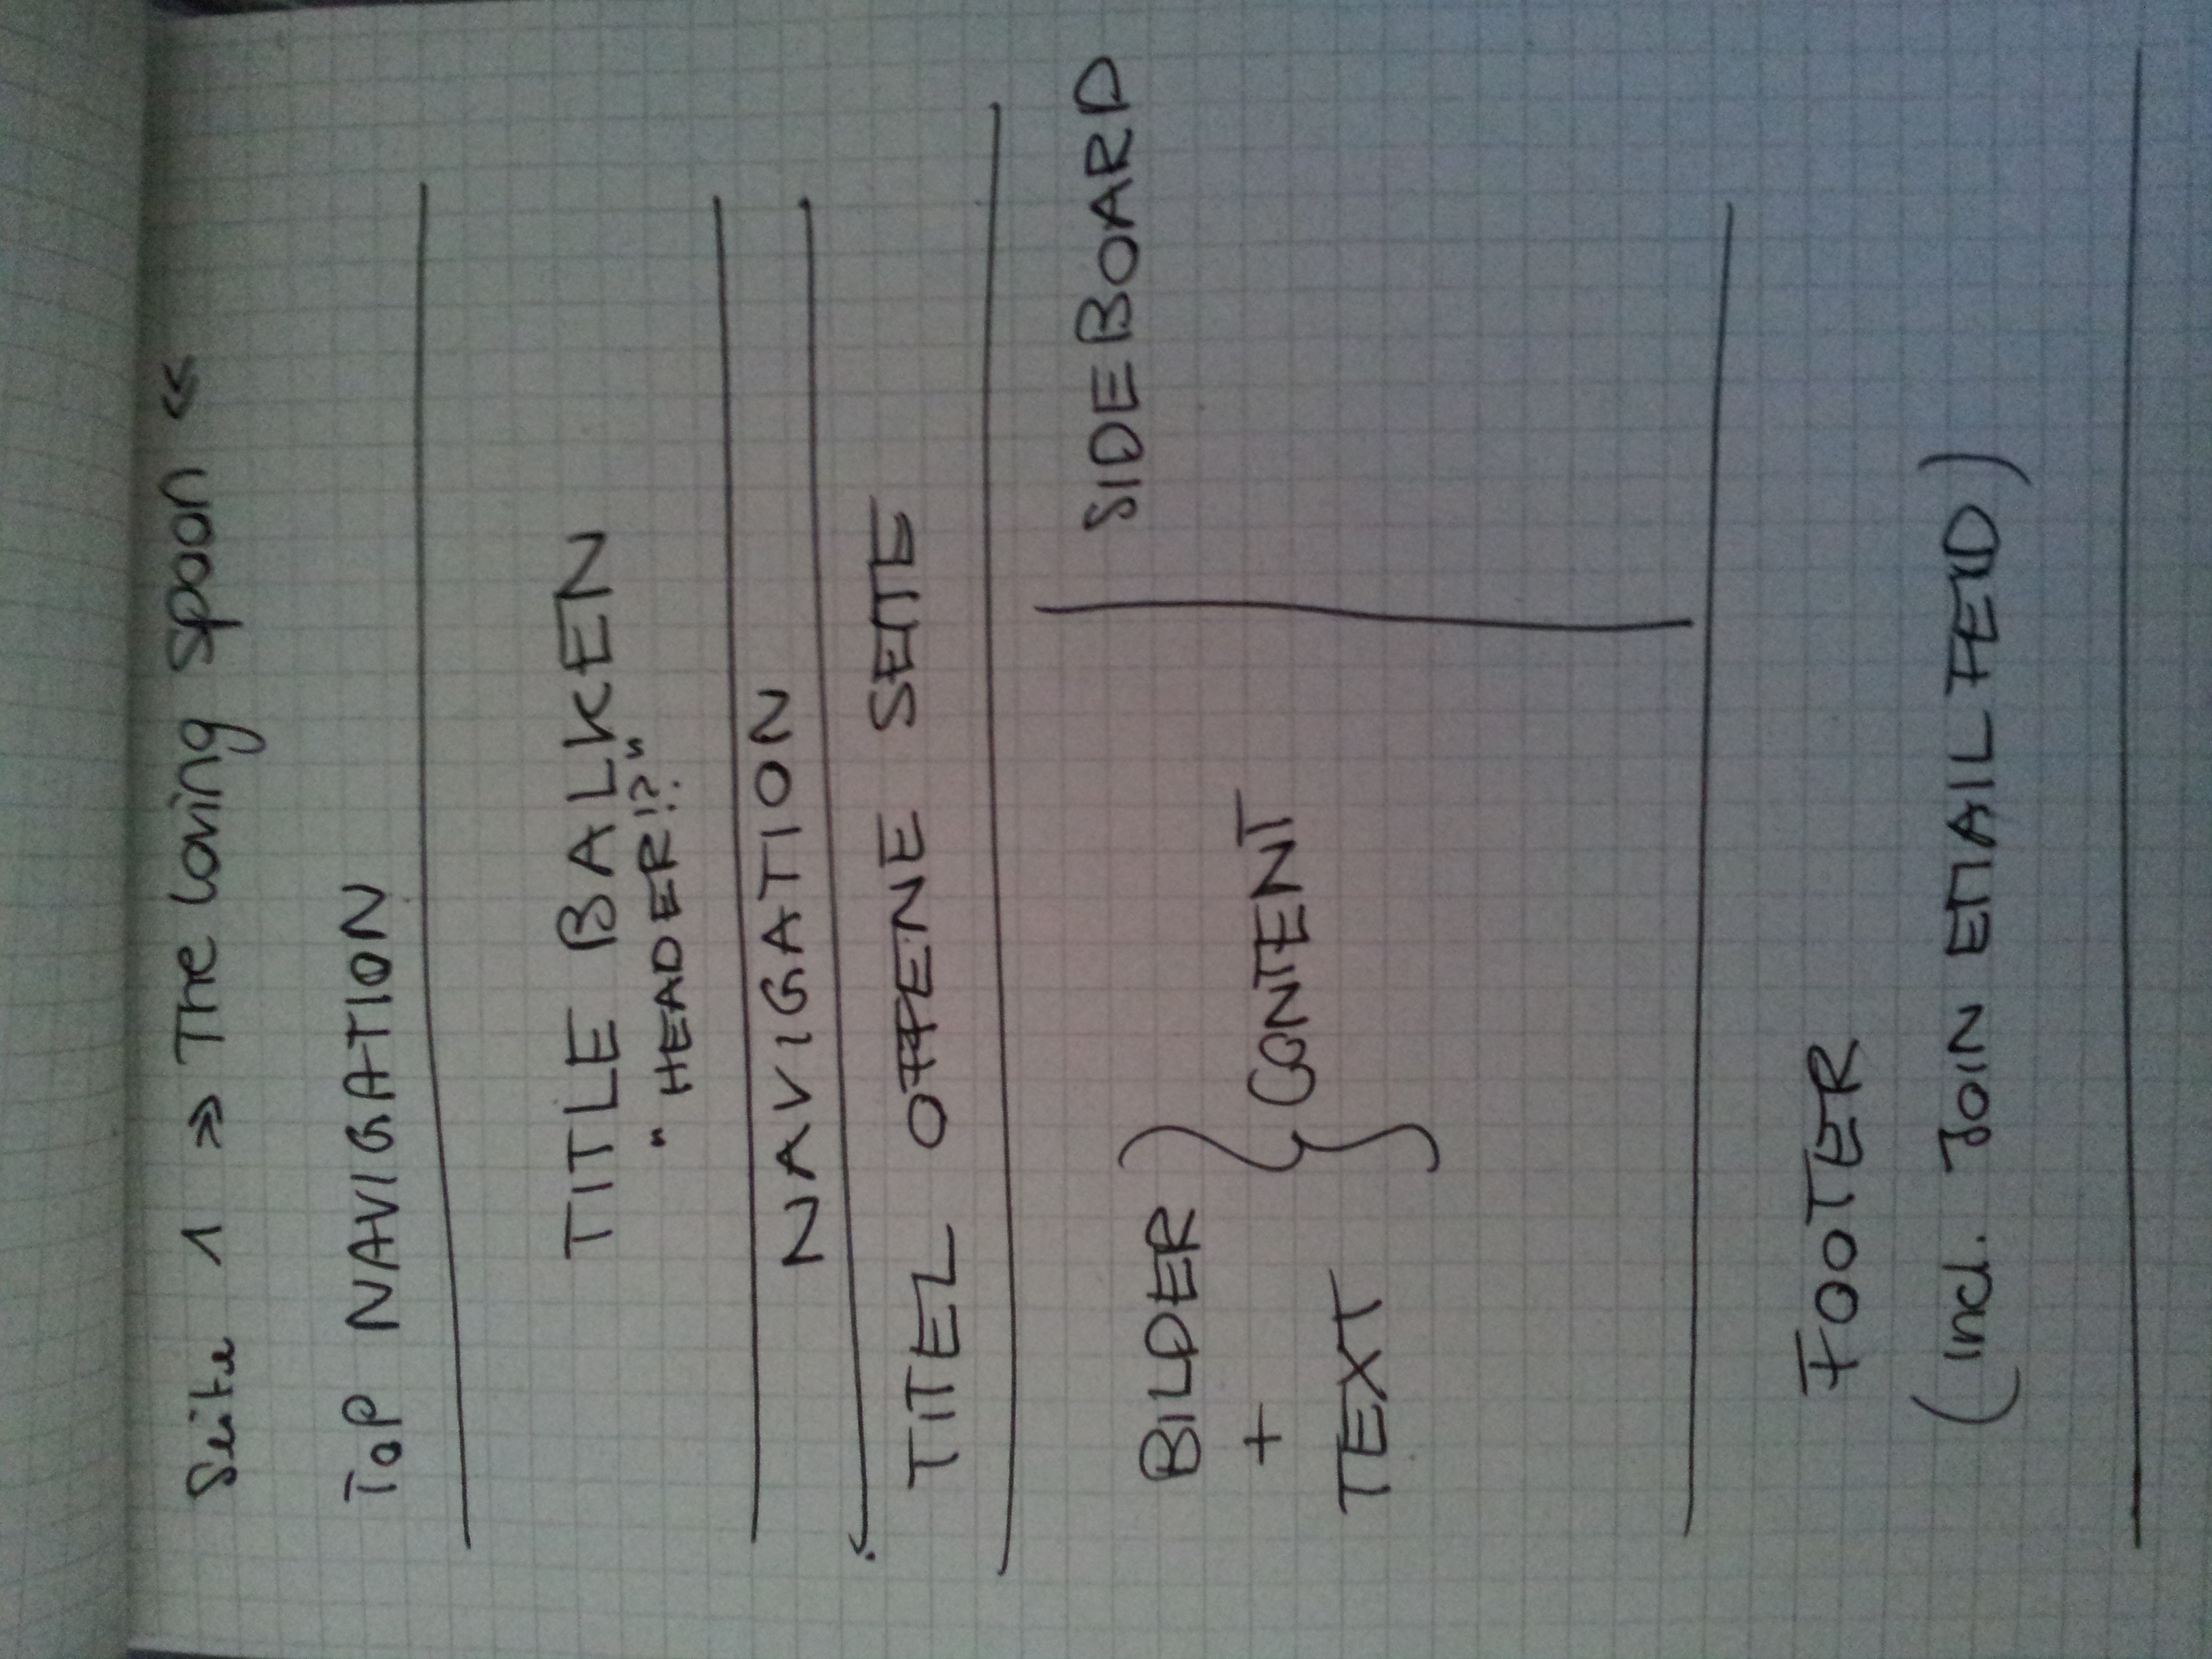 Seite 1 » The loving spoon «
TOP NAVIGATION
TITLE BALKEN
"HEADER!?"
NAVIGATION
TITEL OFFENE SEITE
BILDER
+
TEXT
CONTENT
SIDEBOARD
FOOTER
(incl. JOIN EMAIL FELD)